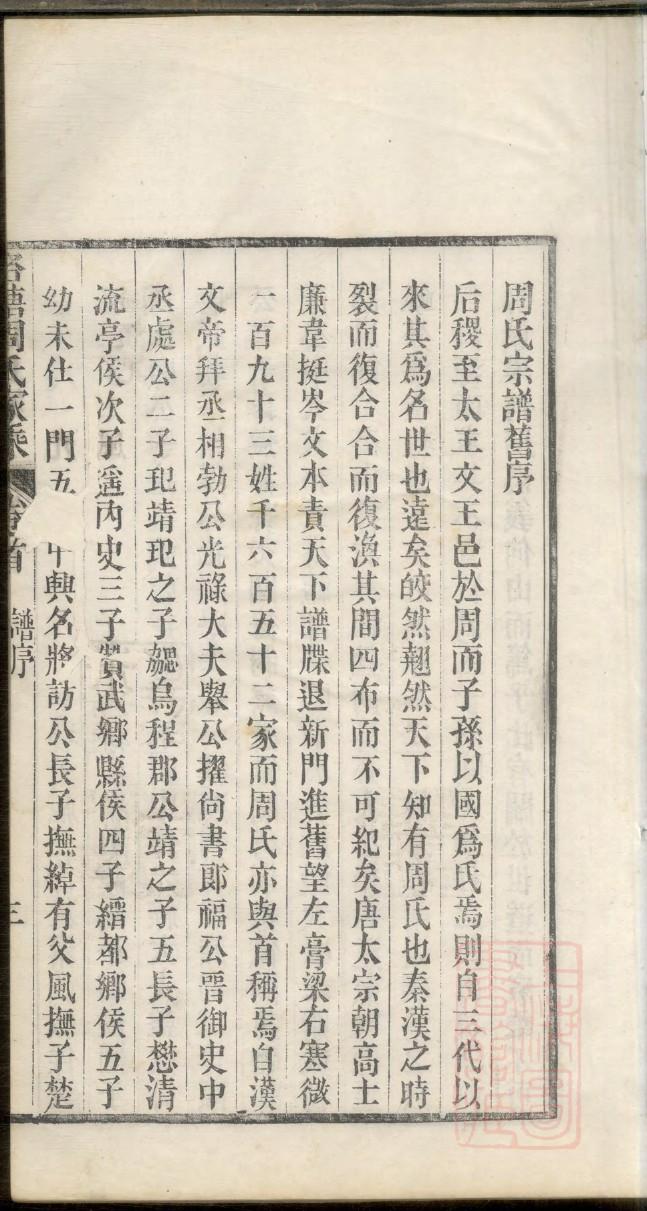 周氏宗譜舊序
后稷至太王文王邑於周而子孫以國爲氏焉則自三代以
來其爲名世也遠矣皎然翹然天下知有周氏也秦漢之時
裂而復合合而復渙其間四布而不可紀矣唐太宗朝高士
廉韋挺岑文本責天下譜牒退新門進舊望左膏梁右寒微
一百九十三姓千六百五十二家而周氏亦與首稱焉自漢
文帝拜丞相勃公光祿大夫舉公擢尙書郞福公晋御史中
丞處公二子玘靖玘之子勰烏程郡公靖之子五長子懋清
流亭侯次子筵內史三子贊武鄉縣侯四子縉都鄉侯五子
幼未仕一門五 中興名將訪公長子撫綽有父風撫子楚
塘周氏家乘 卷首 譜序 三